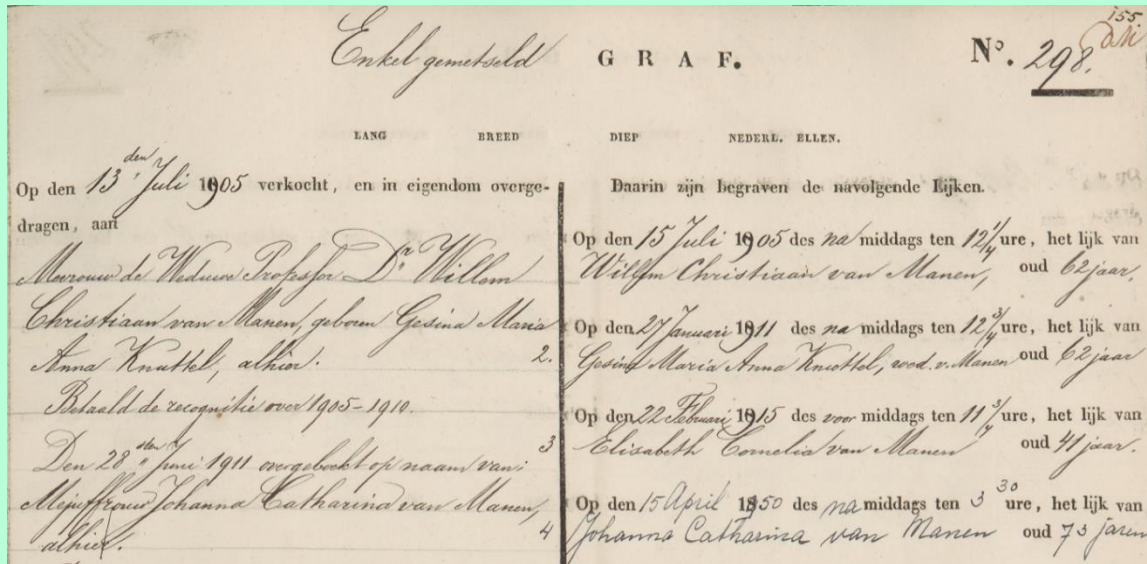 155.
Enkel gemetseld GRAF. No. 298.
LANG BREED DIEP NEDERL. ELLEN.
Op den 13den Juli 1905 verkocht, en in eigendom overge-
dragen, aan
Mevrouw de Weduwe Professor Dr Willem
Christiaan van Manen, geboren Gesina Maria
Anna Knuttel, alhier.
Betaald de recognitie over 1905-1910.
Den 28sten Juni 1911 overgeboekt op naam van:
Mejuffrouw Johanna Catharina van Manen,
alhier.
Daarin zijn begraven de navolgende Lijken.
Op den 15 Juli 1905 des na middags ten 12 1/4 ure, het lijk van
Willem Christiaan van Manen, oud 62 jaar.
Op den 27 Januari 1911 des na middags ten 12 3/4 ure, het lijk van
2. Gesina Maria Anna Knuttel, wed. v. Manen oud 62 jaar
Op den 22 Februari 1915 des voor middags ten 11 3/4 ure, het lijk van
3 Elisabeth Cornelia van Manen oud 41 jaar.
Op den 15 April 1950 des na middags ten 3 30 ure, het lijk van
4 Johanna Catharina van Manen oud 73 jaren